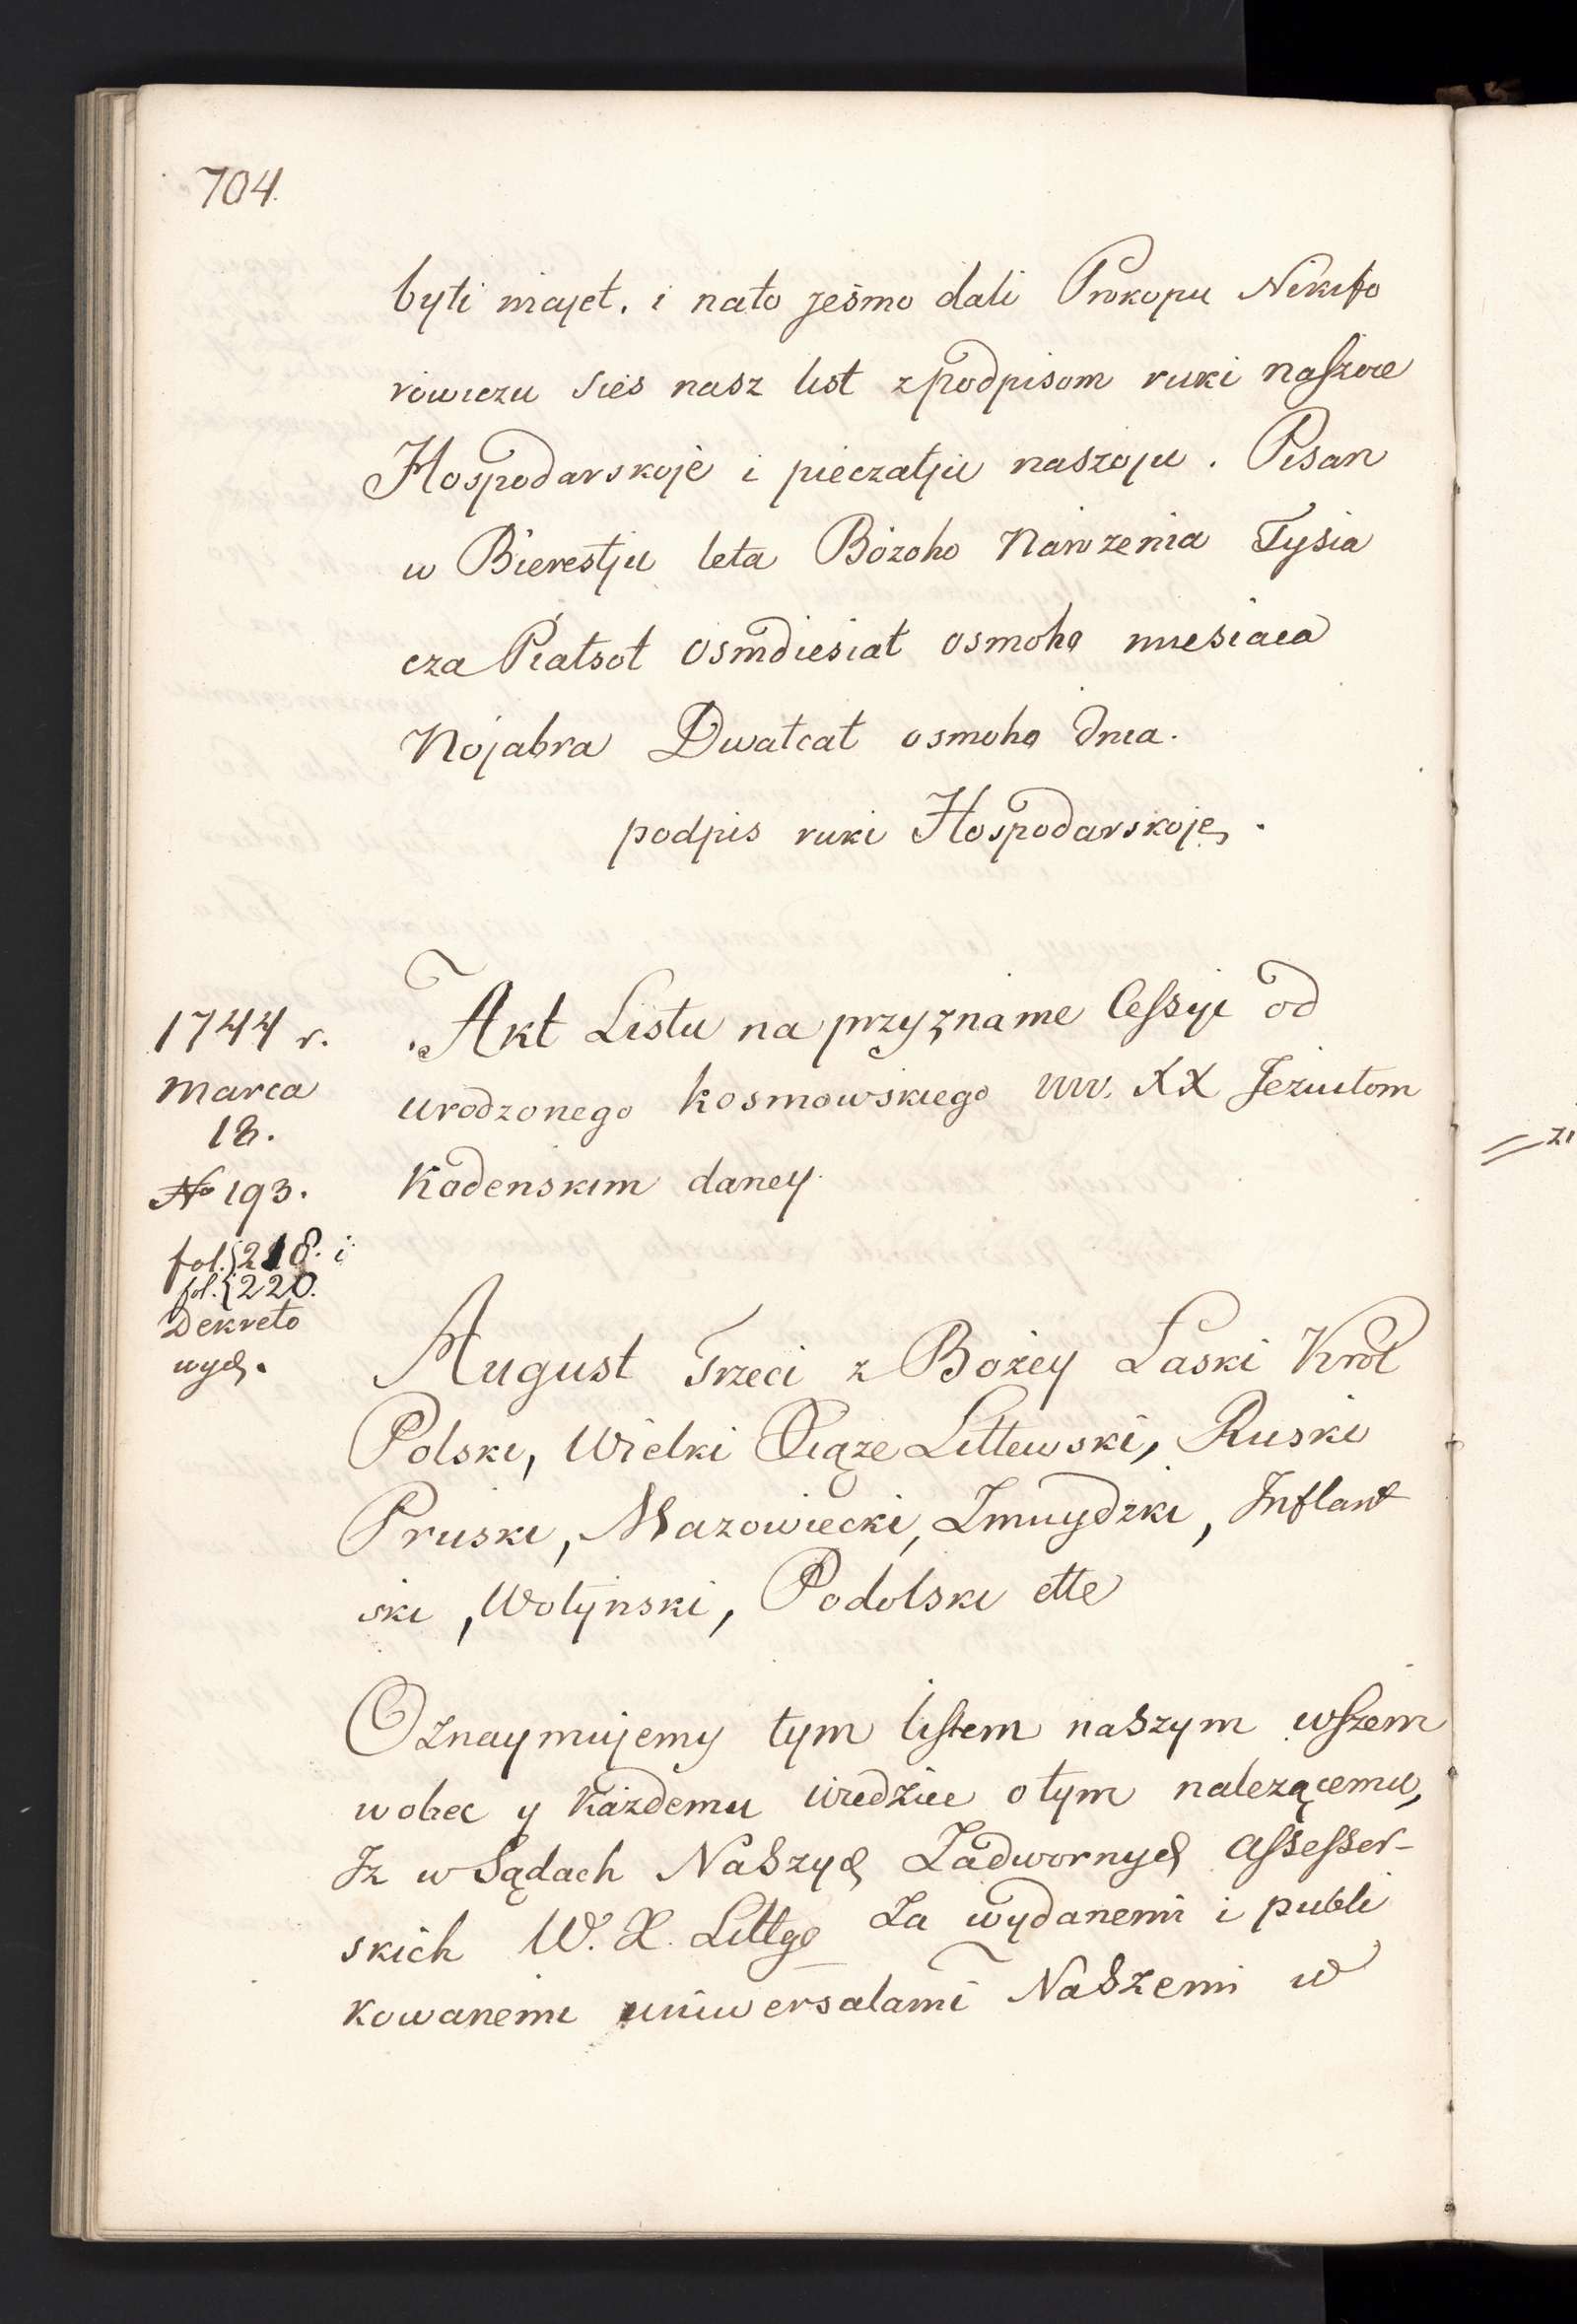 704.
byti majet. i nato jeśmo dali Prokopu Nikifo
rowiczu sies nasz list z podpisom ruki naszoe
Hospodarskoje i pieczatju naszoju. Pisan
w Bierestju leta Bożoho Narożenia Tysia
cza Piatsot osmdiesiat osmoho miesiaca
Nojabra Dwatcat osmoho dnia.
podpis ruki Hospodarskoje.
1744 r.
Marca
18.
No 193.
fol. {218. i
fol. {220.
Dekreto
wych.
Akt Listu na przyznanie Cessyi od
urodzonego Kosmowskiego WW. XX Jezuitom
Kodenskim daney.
August Trzeci z Bożey Łaski Krol
Polski, Wielki Xiąże Littewski, Ruski
Pruski, Mazowiecki, Zmuydzki, Inflant
ski, Wołyński, Podolski ette
Oznaymujemy tym listem naszym wszem
wobec y każdemu wiedzieć o tym należącemu,
Iż w Sądach Naszych Zadwornych Assesser-
skich W. X. Littgo Za wydanemi i publi
kowanemi uniwersalami Naszemi w